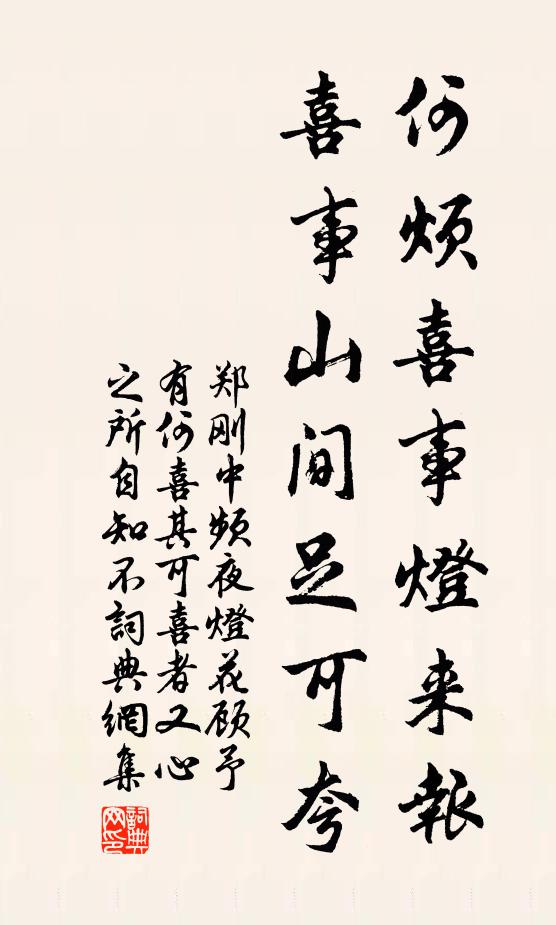 何烦喜事燈来報
喜事山间足可夸
郑刚中频夜燈花顾予
有何喜其可喜者又心
之所自知不詞典網集
詞典
网印